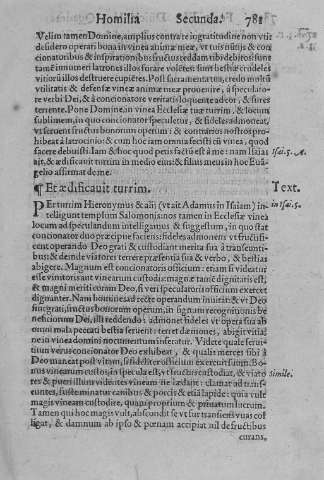 Homilia Secunda. 781
Velim tamen Domine, amplius contra te ingratitudine non vti
desidero operati bona in vinea animæ meæ, vt tuis
cionatoribus & inspirationibus fructus reddam tibi debitos sunt
tamen innumeri latrones illos furare volentes sunt bestiæ crudeles
vitiorū illos destruere cupientes. Posti sacramenta tua, credo multū
vtilitatis & defensæ vineæ animæ meæ prouenire, à speculato-
re verbi Dei, & à concionatore veritatis loquente ad cor, & fures
terrente. Pone Domine in vinea Ecclesiæ tuæ turrim, & locum
sublimem, in quo concionator speculetur, & fideles adhorretur,
vt ferant fructus bonorum operum: & contrarios nostros pro-
hibeat à latrocinio: & cum hoc iam omnia fecisti cū vinea, quod
facere debuisti. Iam & hoc quod petis factū est à me: nam Isaias
ait, & ædificauit turrim in medio eius: & filius meus in hoc Euā-
gelio affirmat de me.
Isai. 5. A.
¶ Et ædificauit turrim.
Text.
PEr turrim Hieronymus & alij (vt ait Adamus in Isaiam) in-
in Isai. 5.
telligunt templum Salomonis: nos tamen in Ecclesiæ vinea
locum ad speculandum intelligamus & suggestum, in quo stat
concionator duo præcipue faciens: fideles admonens vt fructifi-
cent operando Deo grati & custodiant merita sua à transeunti-
bus: & deinde viatores terrere præsentia sua & verbo, & bestias
abigere. Magnum est concionatoris officium: etiam si videatur
esse vinitoris aut vinearum custodiæ magnæ tamē dignitatis est,
& magni meriti coram Deo, si veri speculatoris officium exercet
dignanter. Nam homines ad recte operandum inuitat: & vt Deo
sint grati, fructus bonorum operum, in signum recognitionis be
neficiorum Dei, illi reddendo: admonet fideles vt opera sua ab
omni mala peccati bestia seruent: terret dæmones, abigit vitia: ne
in vinea domini nocumentum inferatur. Videte quale serui-
tium verus concionator Deo exhibeat, & qualis merces sibi à
Deo maneat post vitam, si fideliter officium exercuerit suum. Bo-
nus vinearum custos, in speculo est, vt fructus custodiat, & viato
Simile.
res & pueri illum videntes vineam ne lædant: clamat ad trans-
euntes, sustem minatur canibus, & portat secū lapides: quia vult
magis vineam custodire, quam proprium & priuatum lucrum.
Tamen qui hoc magis vult, abscondit se vt fur transiens vuas col
ligat, & damnum ab ipso & pœnam accipiat nil de fructibus
curans.